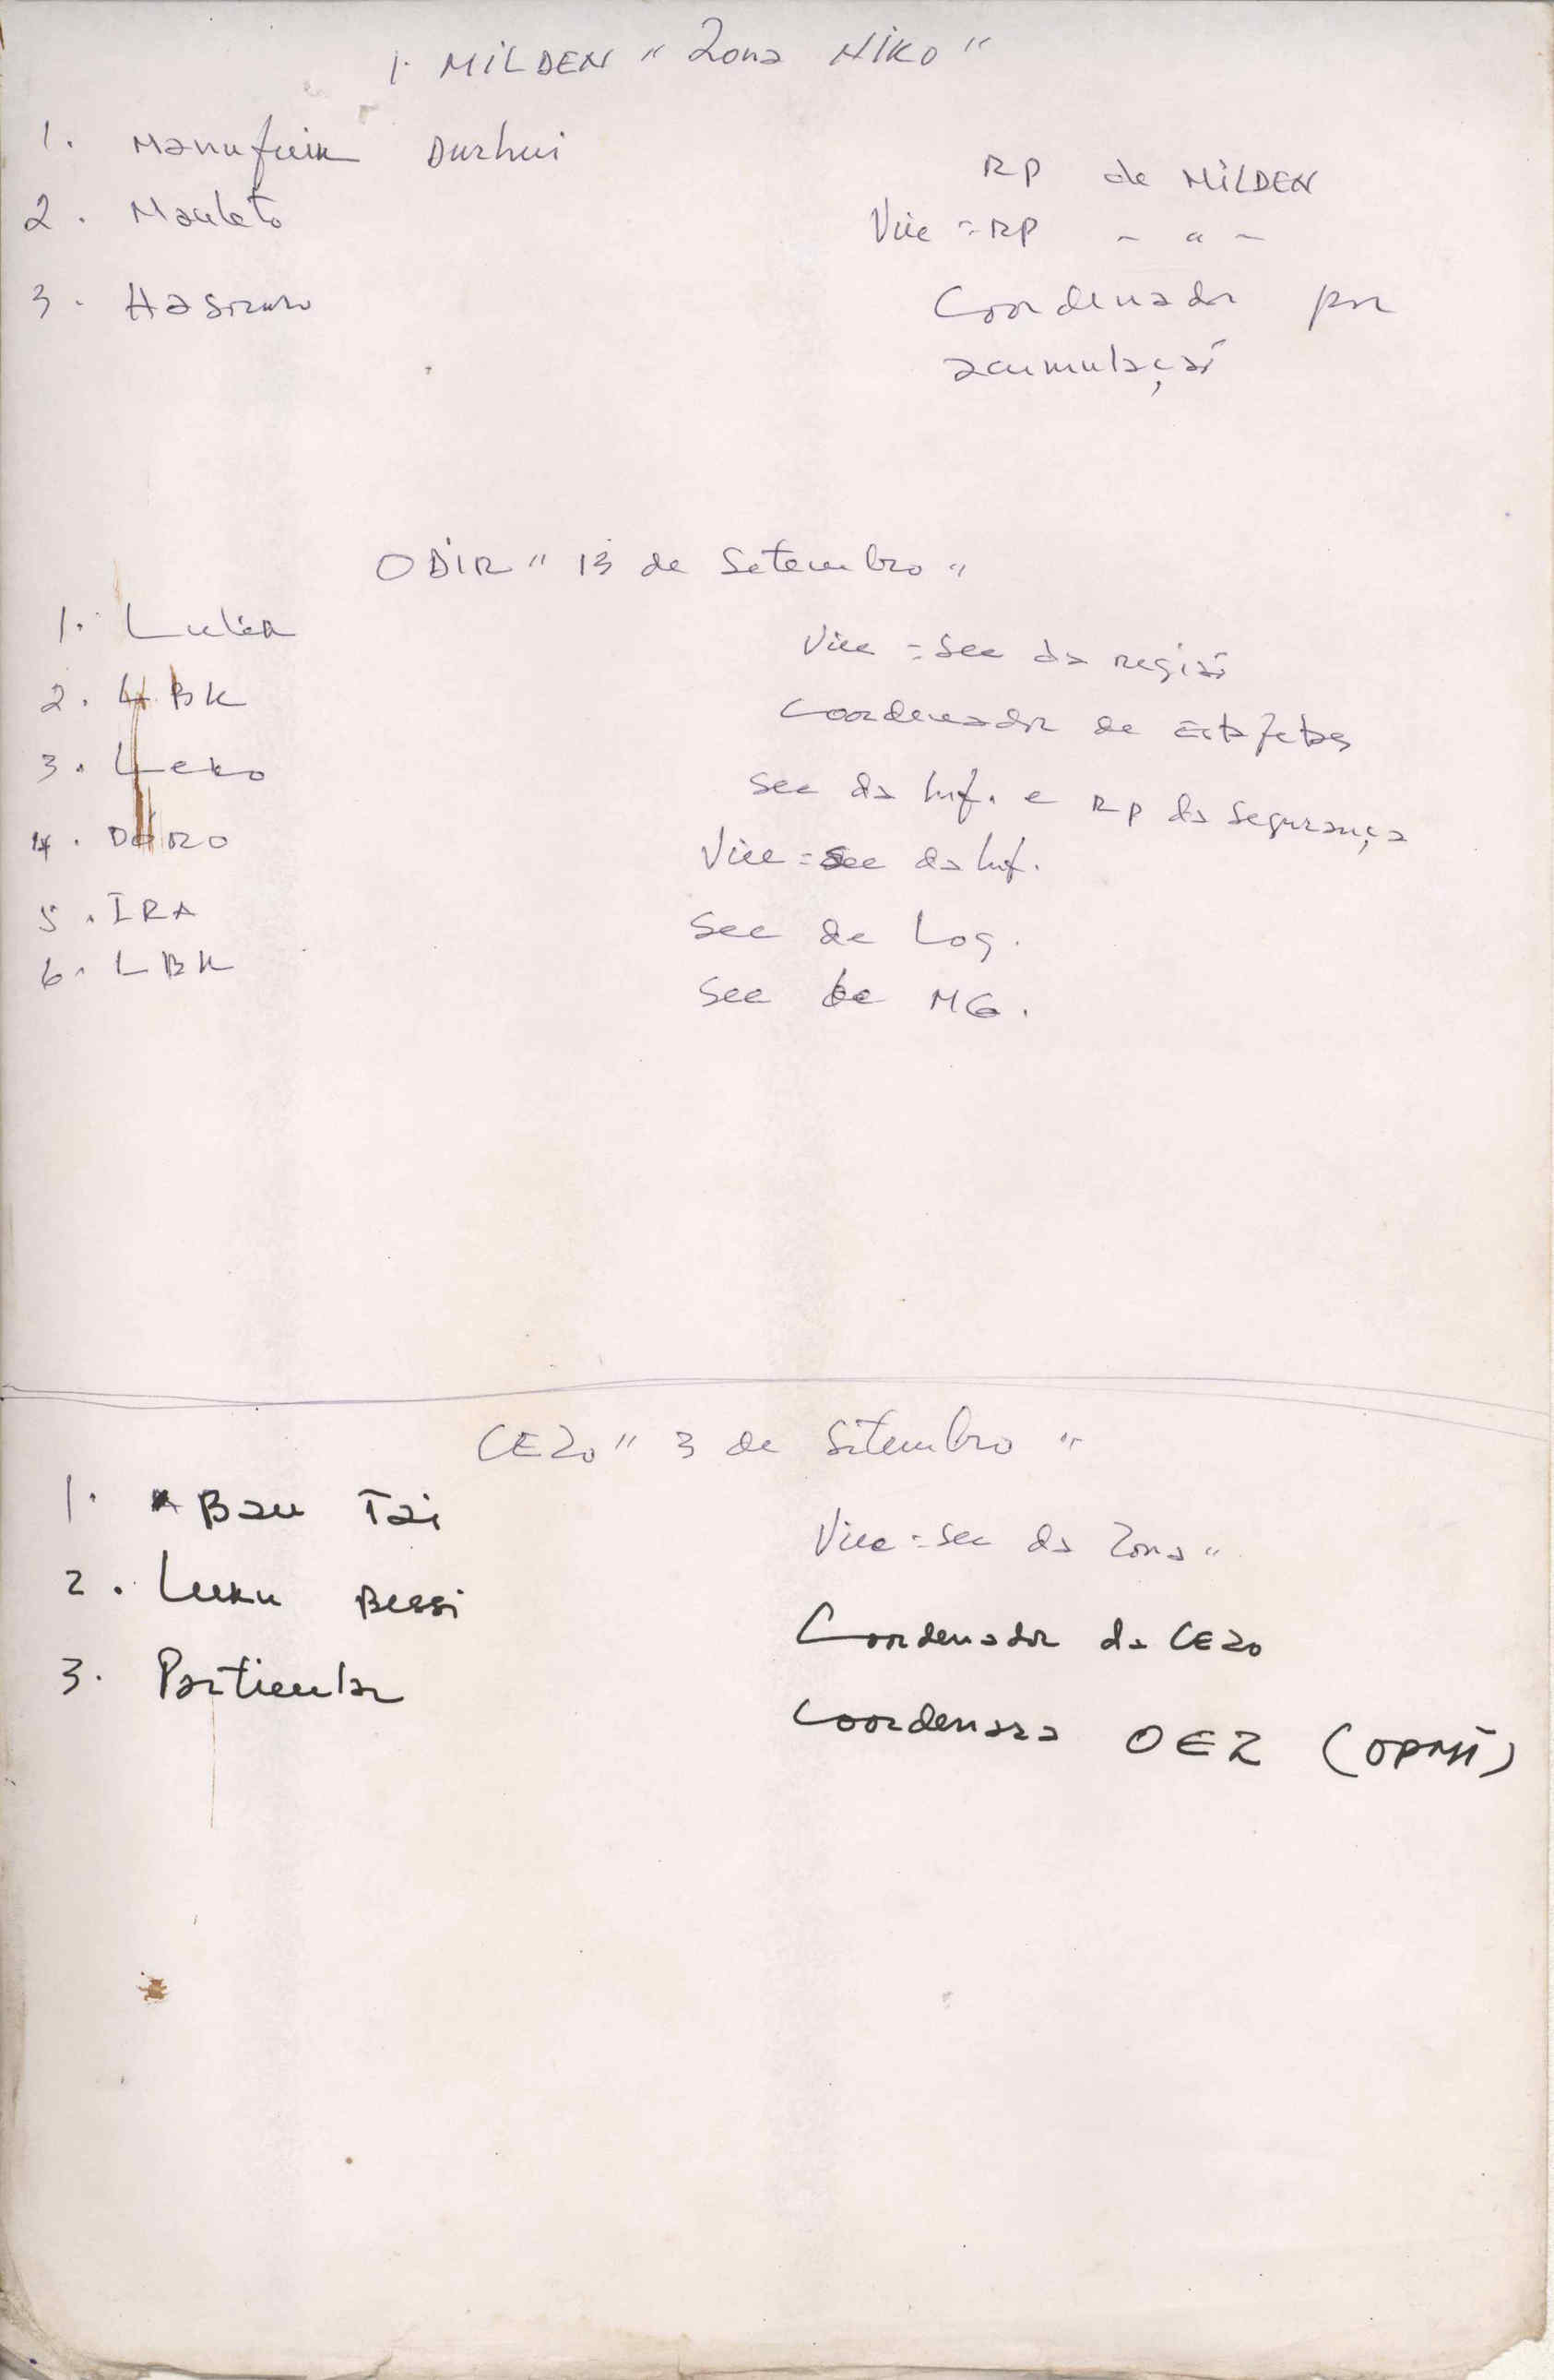 1. MILDEN " Zona NIKO "
1. Manufuik Durhui
RP de MILDEN
2. Mauleto
Vice = RP - " -
3. Hasoruro
Coordenador por
acumulação
ODIR " 13 de Setembro "
1. Lulik
Vice = Sec da região
2. HBK
Coordenador de Estafetas
3. Leko
Sec da Inf. e RP da Segurança
4. DORO
Vice = Sec da Inf.
5. IRA
Sec de Log.
6. LBK
Sec de MG.
CEZO " 3 de Setembro "
1. Bau Tai
Vice = Sec da Zona "
2. Leku Bessi
Coordenador da CEZO
3. Particular
Coordenara OEZ (OPMT)